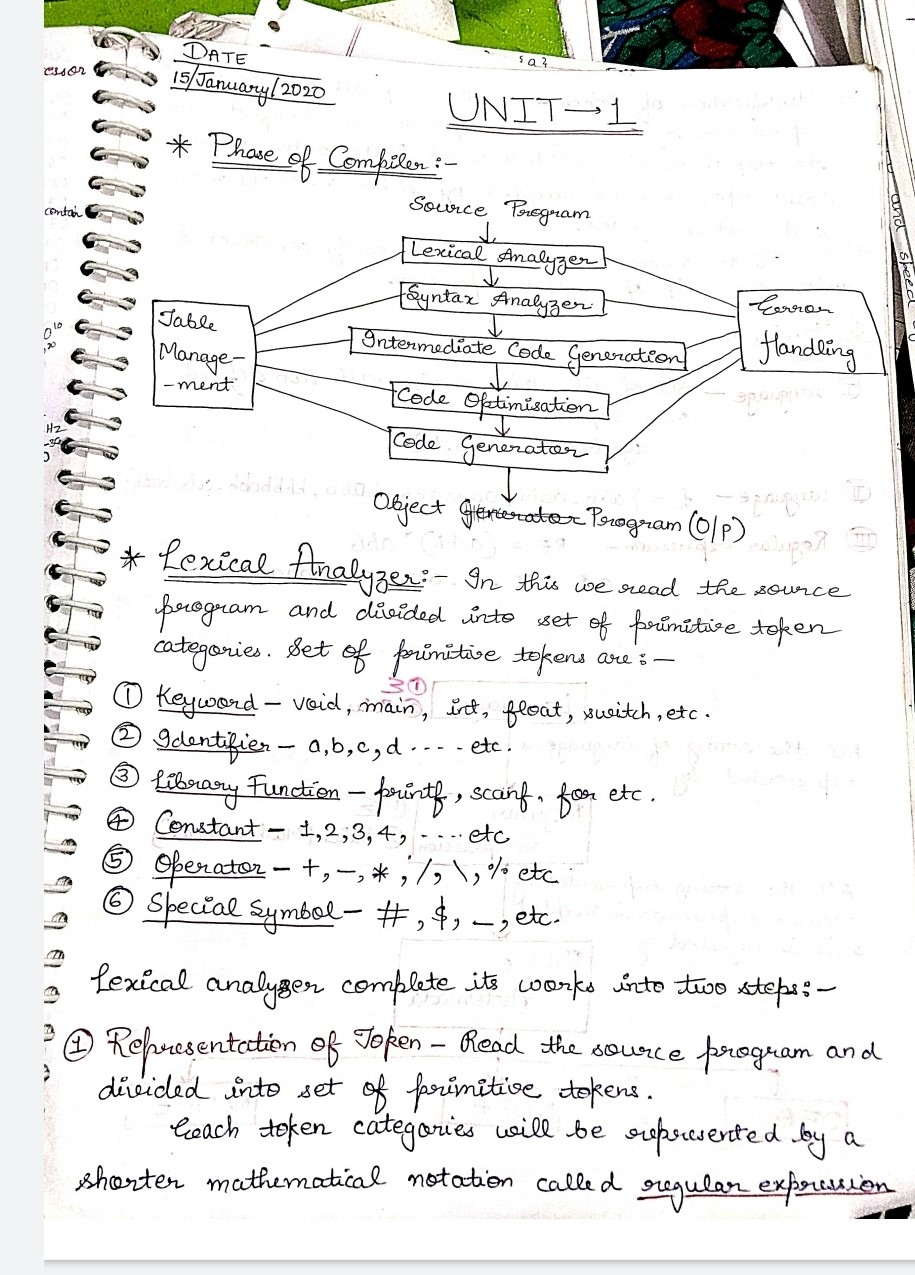 DATE
15/January/2020
UNIT→1
* Phase of Compiler:-
Source Program
Lexical Analyzer
Syntax Analyzer
Intermediate Code Generation
Code Optimisation
Code Generator
Table
Manage-
-ment
Error
Handling
Object Generator Program (O/P)
* Lexical Analyzer:- In this we read the source
program and divided into set of primitive token
categories. Set of primitive tokens are:-
① Keyword - void, main, int, float, switch, etc.
② Identifier - a,b,c,d ---- etc.
③ Library Function - printf, scanf, for etc.
④ Constant - 1,2,3,4, ---- etc
⑤ Operator - +, -, *, /, \, % etc
⑥ Special Symbol - #, $, _, etc.
Lexical analyzer complete its works into two steps:-
① Representation of Token - Read the source program and
divided into set of primitive tokens.
Each token categories will be represented by a
shorter mathematical notation called regular expression